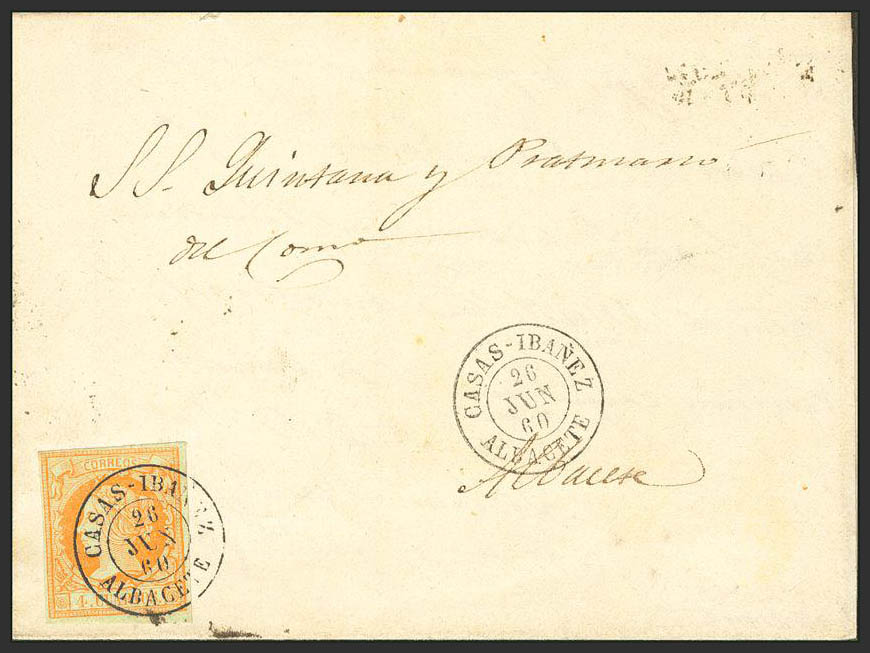 SS. Quintana y
del Com°
CASAS-IBAÑEZ
26
JUN
60
ALBACETE
Albacete
CORREOS
CASAS-IBAÑEZ
26
JUN
60
ALBACETE